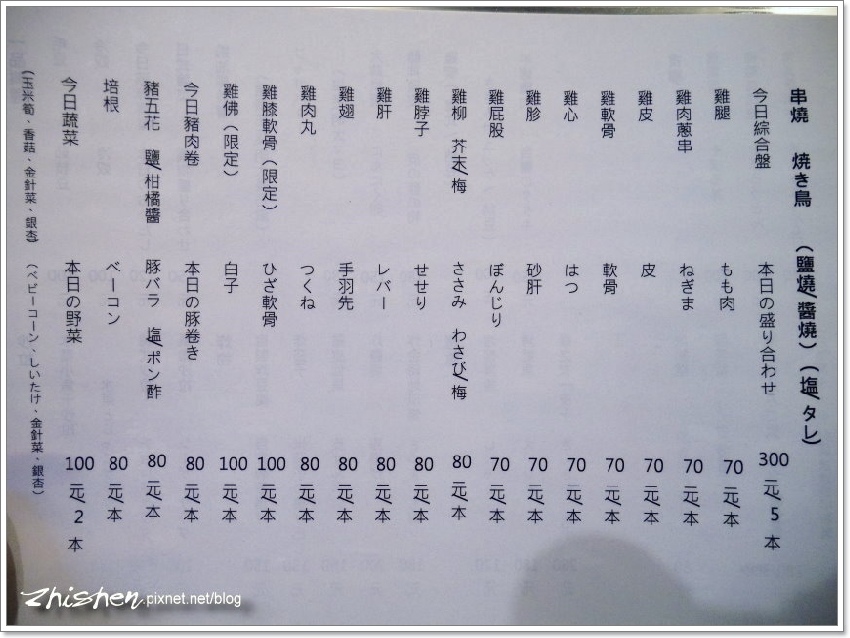 串燒 焼き鳥 (鹽燒/醬燒) (塩/タレ)
今日綜合盤 本日の盛り合わせ 300元/5本
雞腿 もも肉 70元/本
雞肉蔥串 ねぎま 70元/本
雞皮 皮 70元/本
雞軟骨 軟骨 70元/本
雞心 はつ 70元/本
雞胗 砂肝 70元/本
雞屁股 ぼんじり 70元/本
雞柳 芥末/梅 ささみ わさび/梅 80元/本
雞脖子 せせり 80元/本
雞肝 レバー 80元/本
雞翅 手羽先 80元/本
雞肉丸 つくね 80元/本
雞膝軟骨(限定) ひざ軟骨 100元/本
雞佛(限定) 白子 100元/本
今日豬肉卷 本日の豚巻き 80元/本
豬五花 鹽/柑橘醬 豚バラ 塩/ポン酢 80元/本
培根 ベーコン 80元/本
今日蔬菜 本日の野菜 100元/2本
(玉米筍、香菇、金針菜、銀杏) (ベビーコーン、しいたけ、金針菜、銀杏)
zhishen.pixnet.net/blog